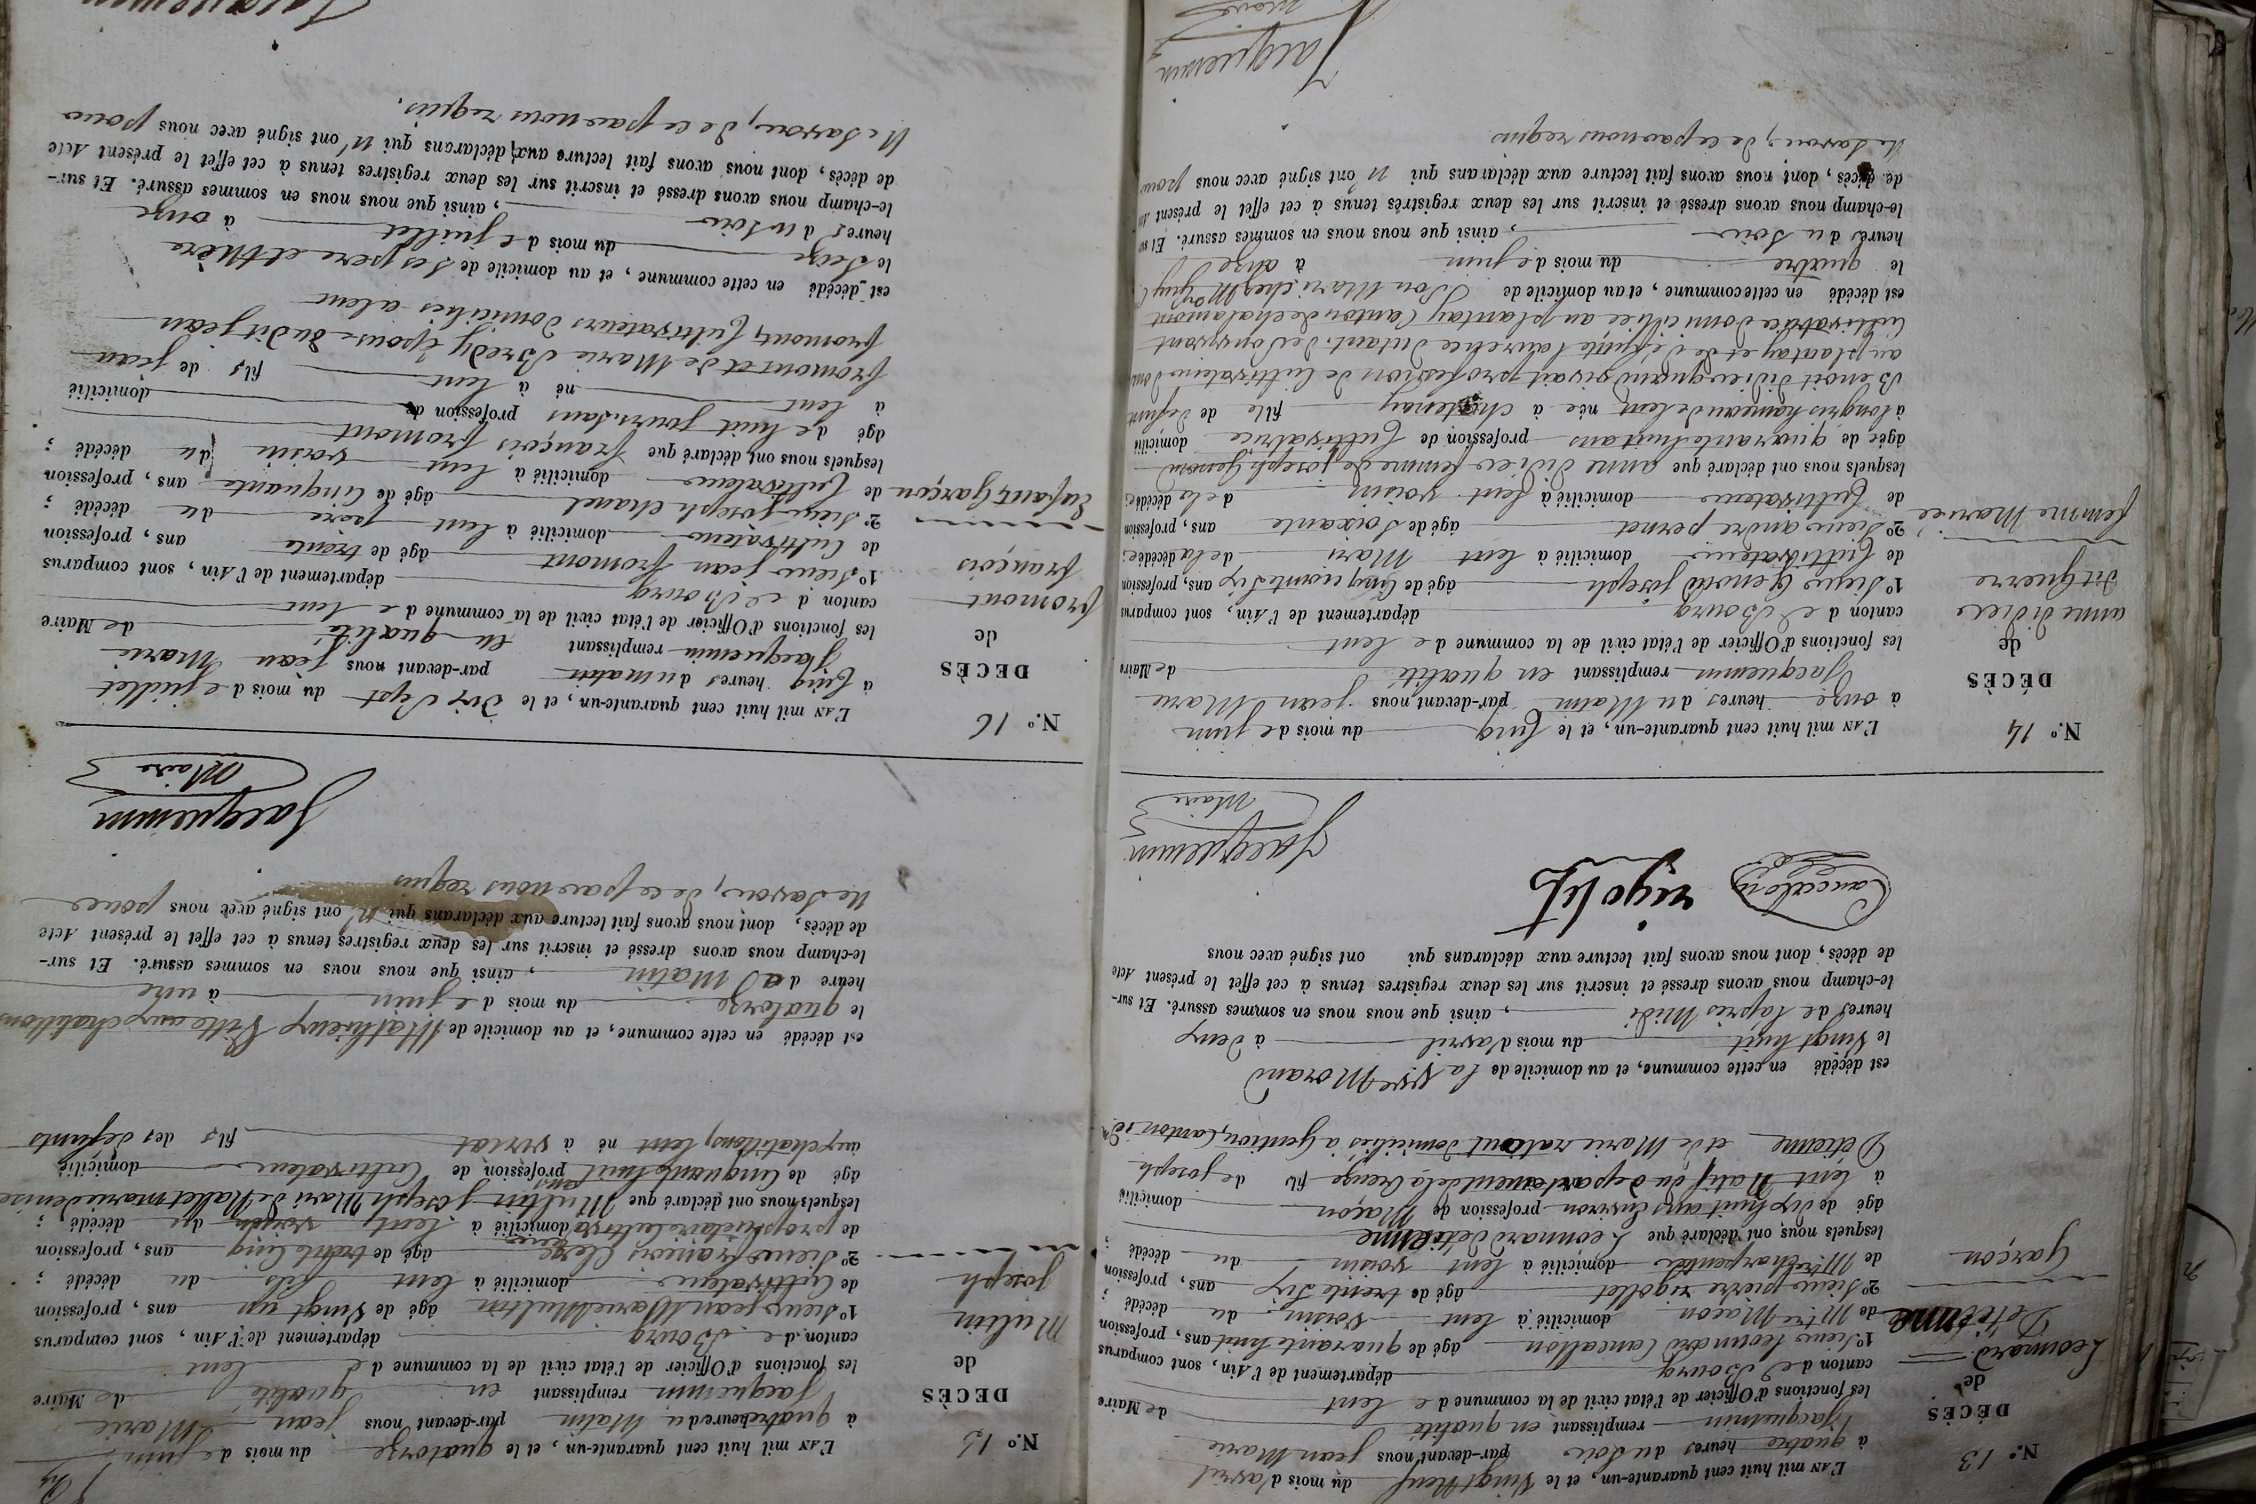 N.º 13
DÉCÈS
de
Leonnard
Detienne
Garçon
L'AN mil huit cent quarante-un, et le Vingt Neuf du mois d'avril
à quatre heures du Soir par-devant nous jean Marie
Jacquemin remplissant en qualité de Maire
les fonctions d'Officier de l'état civil de la commune de lent
canton de Bourg département de l'Ain, sont comparus
1º Sieur leonnard Cancalon âgé de quarante huit ans, profession
de Mtre Maçon domicilié à lent voisin du décédé ;
2º Sieur pierre rigollet âgé de trente Six ans, profession
de Mtre Charpentier domicilié à lent voisin du décédé ;
lesquels nous ont déclaré que Leonnard detienne
âgé de dix huit ans Environ profession de Maçon domicilié
à lent Natif du departement de la Creuze fils de joseph
Detienne et de Marie domiciliés à Gention, Canton id.
est décédé en cette commune, et au domicile de la Vve Morand
le Vingt huit du mois d'avril à deux
heures de l'après Midi, ainsi que nous nous en sommes assuré. Et sur-
le-champ nous avons dressé et inscrit sur les deux registres tenus à cet effet le présent Acte
de décès, dont nous avons fait lecture aux déclarans qui ont signé avec nous
Cancalon rigolet
Jacquemin
Maire
N.º 14
DÉCÈS
de
anne didier
dit Guerre
femme Mariée
L'AN mil huit cent quarante-un, et le Cinq du mois de juin
à onze heures du Matin par-devant nous jean Marie
Jacquemin remplissant en qualité de Maire
les fonctions d'Officier de l'état civil de la commune de lent
canton de Bourg département de l'Ain, sont comparus
1º Sieur Genoud joseph âgé de Cinquante Six ans, profession
de Cultivateur domicilié à lent Mari de la décédée ;
2º Sieur andré pernet âgé de Soixante ans, profession
de Cultivateur domicilié à lent voisin de la décédée ;
lesquels nous ont déclaré que anne didier femme de joseph Genoud
âgée de quarante huit ans profession de Cultivatrice domicilié
à longris hameau de lent née à Chatenay fille de defunt
Benoit didier quand vivait profession de Cultivateur dom
au plantay et de defunte laurence dutant de Son vivant
Cultivatrice domiciliée au plantay Canton de chalamont
est décédé en cette commune, et au domicile de Son Mari chez Mor Guy
le quatre du mois de juin à onze
heures du Soir, ainsi que nous nous en sommes assuré. Et sur
le-champ nous avons dressé et inscrit sur les deux registres tenus à cet effet le présent
de décès, dont nous avons fait lecture aux déclarans qui n'ont signé avec nous pour
Ne Savoir, de ce par nous requis
Jacquemin
Maire
N.º 15
DÉCÈS
de
Multin
Joseph
L'AN mil huit cent quarante-un, et le quatorze du mois de juin
à quatre heures du Matin par-devant nous jean Marie
Jacquemin remplissant en qualité de Maire
les fonctions d'Officier de l'état civil de la commune de lent
canton de Bourg département de l'Ain, sont comparus
1º Sieur jean Marie Multin âgé de Vingt un ans, profession
de Cultivateur domicilié à lent fils du décédé ;
2º Sieur francois Clerc âgé de trente Cinq ans, profession
de propriétaire Cultiva domicilié à lent voisin du décédé ;
lesquels nous ont déclaré que Multin joseph Mari de Mallet marie denise
âgé de Cinquante huit ans profession de Cultivateur domicilié
aux chatillons, lent né à viriat fils des defunts
est décédé en cette commune, et au domicile de Mathieux Pitte aux chatillons
le quatorze du mois de juin à une
heure du Matin, ainsi que nous nous en sommes assuré. Et sur-
le-champ nous avons dressé et inscrit sur les deux registres tenus à cet effet le présent Acte
de décès, dont nous avons fait lecture aux déclarans qui n'ont signé avec nous pour
Ne Savoir, de ce par nous requis
Jacquemin
Maire
N.º 16
DÉCÈS
de
fromont
françois
Enfant Garçon
L'AN mil huit cent quarante-un, et le dix Sept du mois de juillet
à Cinq heures du matin par-devant nous jean Marie
Jacquemin remplissant en qualité de Maire
les fonctions d'Officier de l'état civil de la commune de lent
canton de Bourg département de l'Ain, sont comparus
1º Sieur jean fromont âgé de trente ans, profession
de Cultivateur domicilié à lent pere du décédé ;
2º Sieur joseph Chanel âgé de Cinquante ans, profession
de Cultivateur domicilié à lent voisin du décédé ;
lesquels nous ont déclaré que françois fromont
âgé de huit jours Sans profession de domicilié
à lent né à lent fils de jean
fromont et de Marie Bredy Epouse dudit jean
fromont, Cultivateurs domiciliés a lent
est décédé en cette commune, et au domicile de Ses pere et Mère
le Seize du mois de juillet à onze
heures du Soir, ainsi que nous nous en sommes assuré. Et sur-
le-champ nous avons dressé et inscrit sur les deux registres tenus à cet effet le présent Acte
de décès, dont nous avons fait lecture aux déclarans qui n'ont signé avec nous pour
Ne Savoir, de ce par nous requis.
Jacquemin